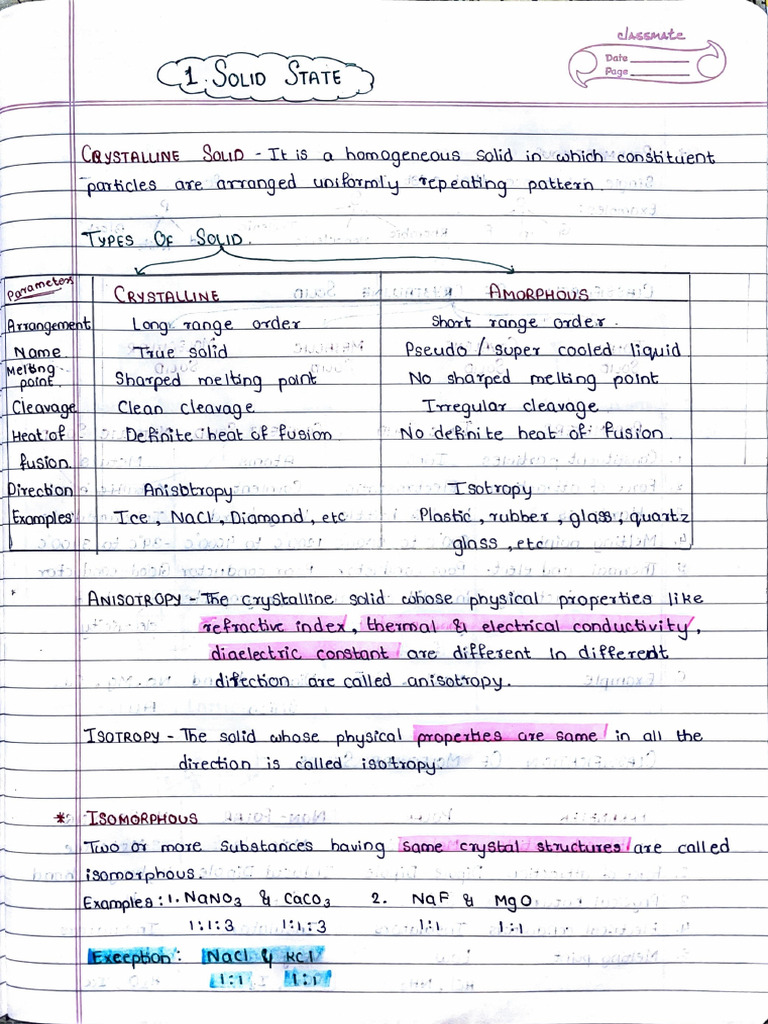 classmate
Date
Page
1. SOLID STATE
CRYSTALLINE SOLID - It is a homogeneous solid in which constituent
particles are arranged uniformly repeating pattern.
TYPES OF SOLID.
Parameters CRYSTALLINE AMORPHOUS
Arrangement Long range order Short range order.
Name True solid Pseudo / super cooled liquid
Melting point. Sharped melting point No sharped melting point
Cleavage Clean cleavage Irregular cleavage
Heat of Definite heat of fusion No definite heat of fusion.
fusion.
Direction Anisotropy Isotropy
Examples Ice, NaCl, Diamond, etc Plastic, rubber, glass, quartz
glass, etc
ANISOTROPY - The crystalline solid whose physical properties like
refractive index, thermal & electrical conductivity,
diaelectric constant are different in different
direction are called anisotropy.
ISOTROPY - The solid whose physical properties are same in all the
direction is called isotropy.
* ISOMORPHOUS
Two or more substances having same crystal structures are called
isomorphous.
Examples: 1. NaNO3 & CaCO3 2. NaF & MgO
1:1:3 1:1:3 1:1 1:1
Exception: NaCl & KCl
1:1 1:1